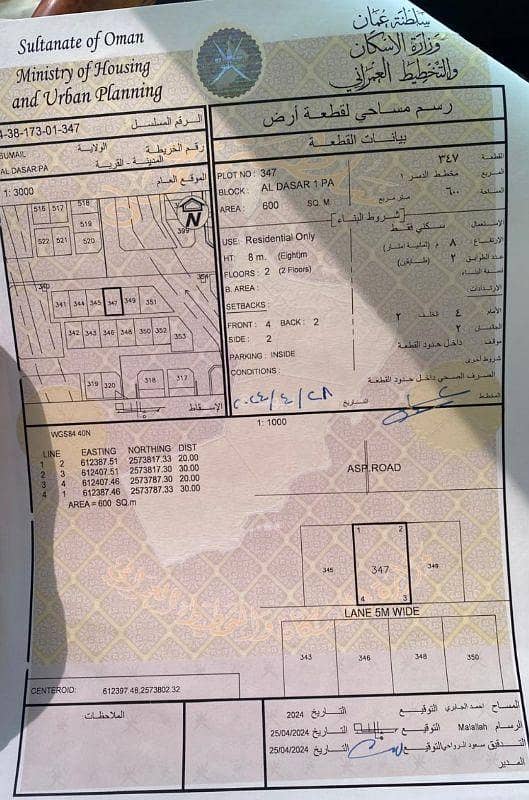 Sultanate of Oman
Ministry of Housing
and Urban Planning
سلطنة عمان
وزارة الإسكان
والتخطيط العمراني
4-38-173-01-347
الرقم المسلسل
SUMAIL
الولاية
رقم الخريطة
AL DASAR PA
المدينة - القرية
1: 3000
الموقع العام
رسم مساحي لقطعة أرض
بيانات القطعة
PLOT NO : 347
القطعة ٣٤٧
BLOCK : AL DASAR 1 PA
المربع مخطط الدسر ١
AREA : 600 SQ. M
المساحة ٦٠٠ متر مربع
[شروط البناء]
USE: Residential Only
الاستعمال سكني فقط
HT: 8 m. (Eight)m
الارتفاع ٨ م (ثمانية أمتار)
FLOORS : 2 (2 Floors)
عدد الطوابق ٢ (طابقين)
B. AREA :
نسبة البناء
SETBACKS :
الارتدادات
FRONT : 4 BACK : 2
الأمام ٤ الخلف ٢
SIDE : 2
الجانبين ٢
PARKING : INSIDE
موقف داخل حدود القطعة
CONDITIONS :
شروط أخرى
الصرف الصحي داخل حدود القطعة
التاريخ ٢٠٢٤/٤/٢٨
المخطط
N
516 517 518
519
522 521 520
399
340
354
341 344 345 347 349 351
342 343 346 348 350 352 353
319 320 318 317
الإسقاط
WGS84 40N
1: 1000
LINE EASTING NORTHING DIST
1 2 612387.51 2573817.33 20.00
2 3 612407.51 2573817.30 30.00
3 4 612407.46 2573787.30 20.00
4 1 612387.46 2573787.33 30.00
AREA = 600 SQ.m
ASP.ROAD
1 2
345 347 349
4 3
LANE 5M WIDE
343 346 348 350
CENTEROID: 612397.48,2573802.32
الملاحظات
المساح احمد الجابري التوقيع التاريخ 2024
الرسام Ma'allah التوقيع التاريخ 25/04/2024
التدقيق سعود الرواحي التوقيع التاريخ 25/04/2024
المدير